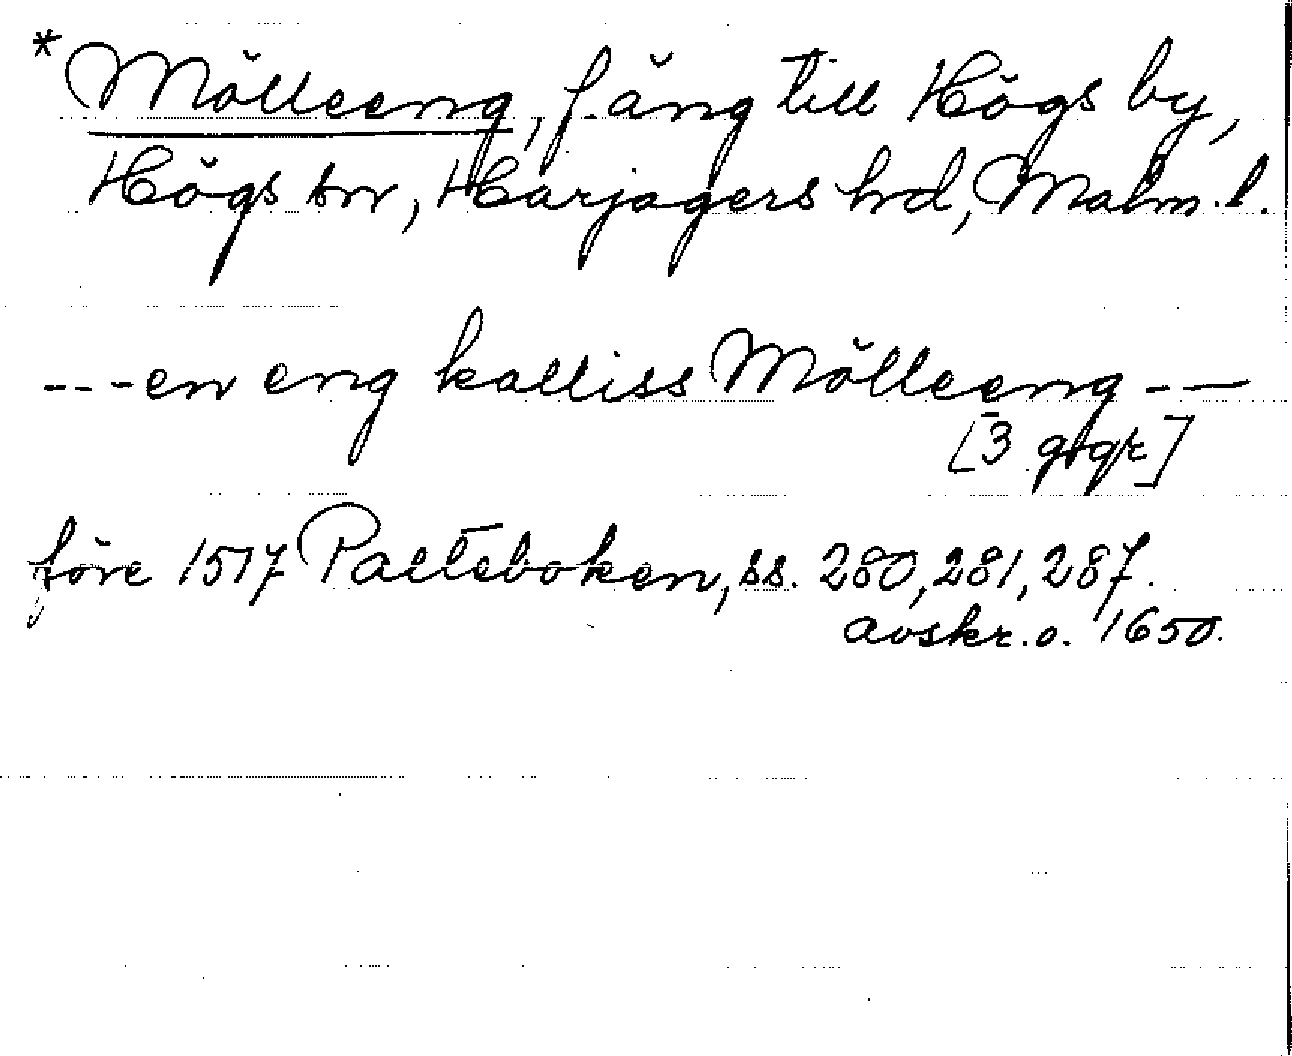 *Mölleeng, f. äng till Högs by,
Högs sn, Harjagers hd, Malm. l.
---en eng kalliss Mölleeng - —
[3 ggr]
före 1517 Palteboken, ss. 280, 281, 287.
avskr. o. 1650.